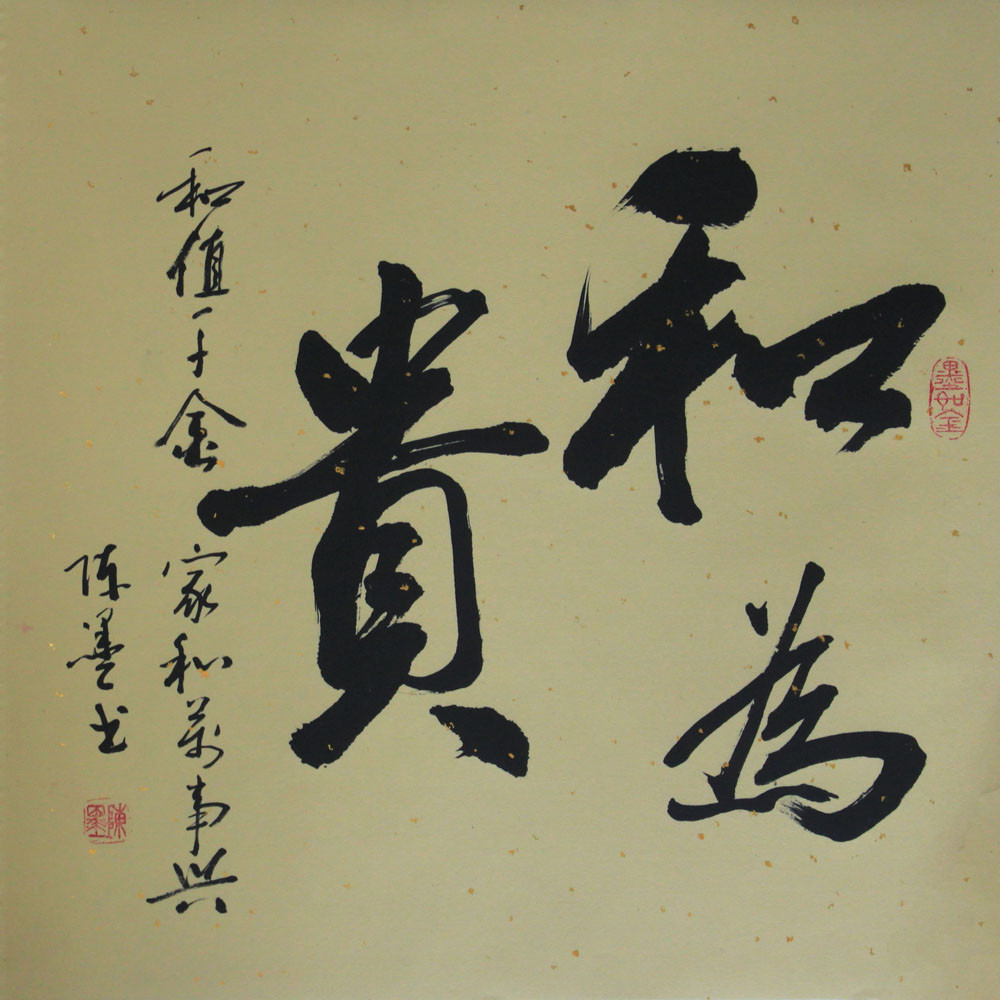 和為
貴
和值千金 家和萬事興
陈墨书
墨如金
陳墨